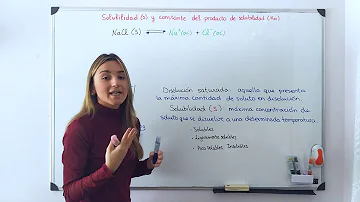 Solubilidad (s) y constante del producto de solubilidad (Kps)
NaCl (s) ⇌ Na⁺(ac) + Cl⁻(ac)
Disolución saturada: aquella que presenta
la máxima cantidad de soluto en disolución.
Solubilidad (S) máxima concentración de
soluto que se disuelve a una determinada temperatura.
- Solubles
- Ligeramente solubles
- Poco Solubles Insolubles